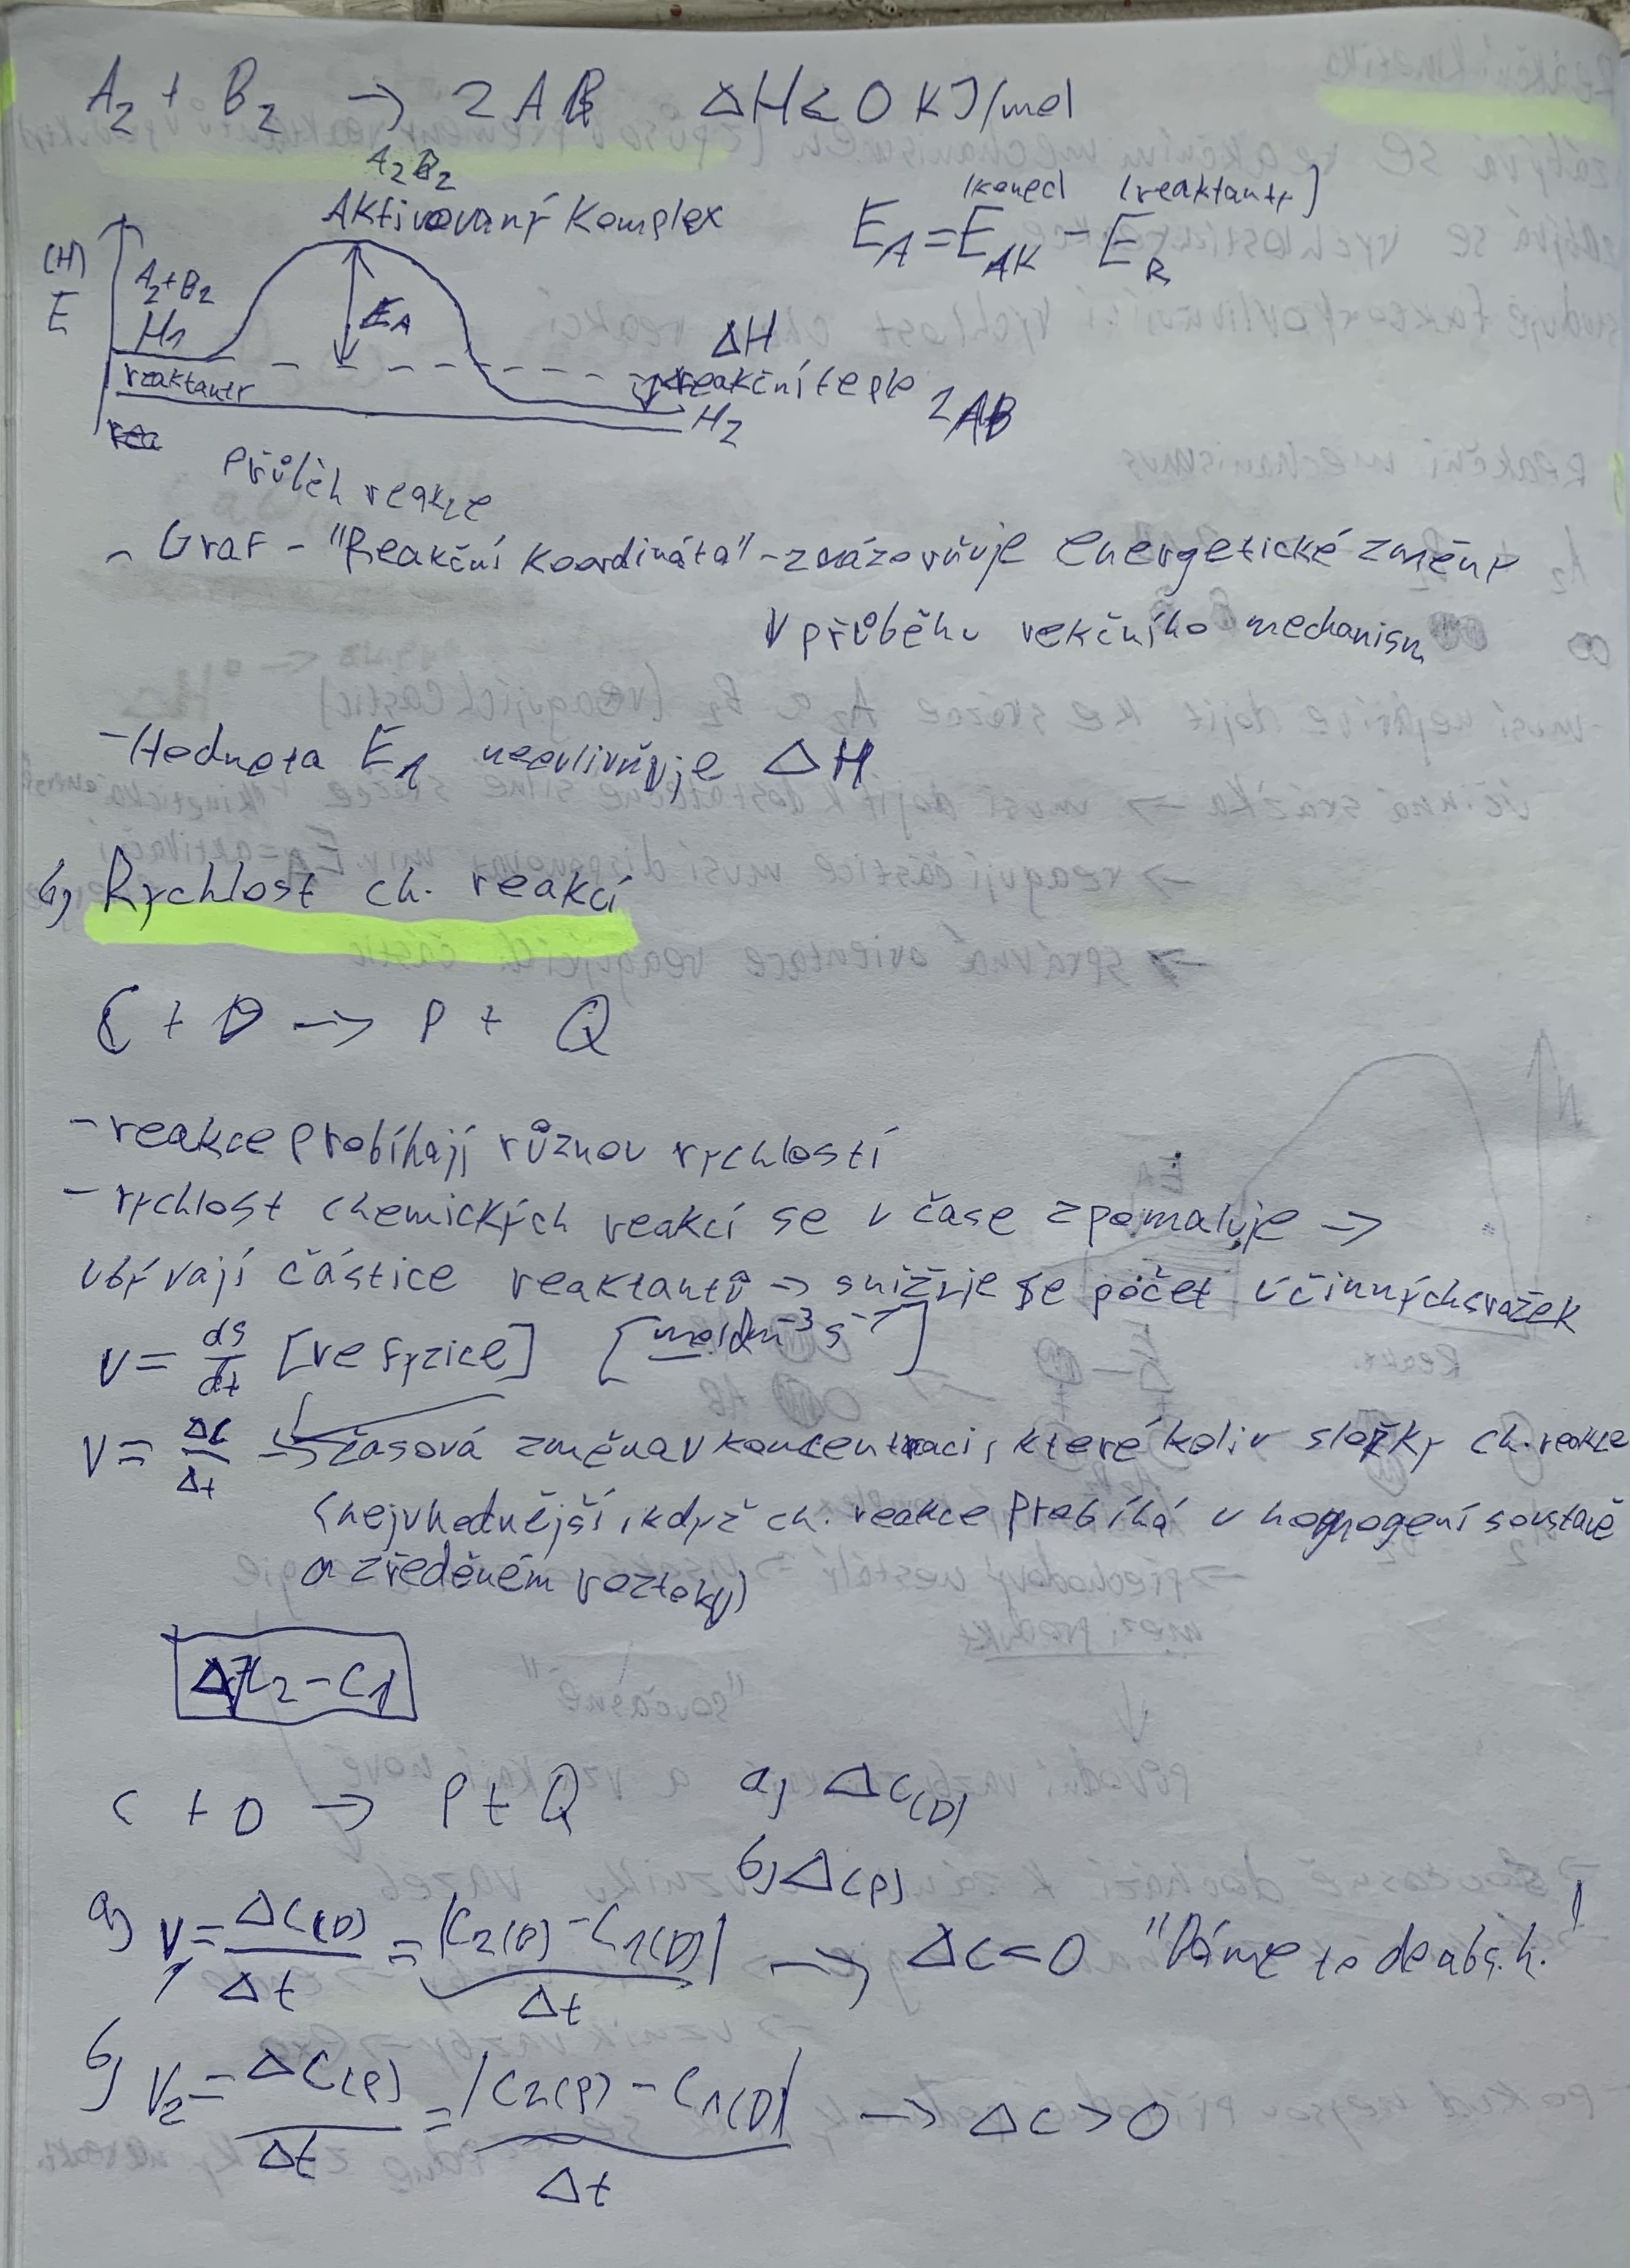 A₂ + B₂ → 2AB ΔH < 0 KJ/mol
A₂B₂
Aktivovaný komplex
(konec) (reaktanty)
E_A = E_AK - E_R
(H)
E
A₂+B₂
H₁
E_A
ΔH
reaktanty
reakční teplo
H₂
2AB
Průběh reakce
- Graf - "Reakční koordináta" - znázorňuje energetické změny
v průběhu rekčního mechanism
- Hodnota E_A neovlivňuje ΔH
b) Rychlost ch. reakcí
C + D → P + Q
- reakce probíhají různou rychlostí
- rychlost chemických reakcí se v čase zpomaluje →
ubývají částice reaktantů → snižuje se počet účinných srážek
v = ds/dt [ve fyzice] [mol dm⁻³ s⁻¹]
v = Δc/Δt → časová změna v koncentraci, kterékoliv složky ch. reakce
(nejvhodnější, když ch. reakce probíhá v homogení soustavě
a zředěném roztoku)
Δ c₂ - c₁
C + D → P + Q a) Δc(D)
b) Δ(P)
a) v₁ = Δc(D)/Δt = |c₂(D) - c₁(D)|/Δt → Δc < 0 "Dáme to do abs. h."
b) v₂ = Δc(P)/Δt = |c₂(P) - c₁(D)|/Δt → Δc > 0